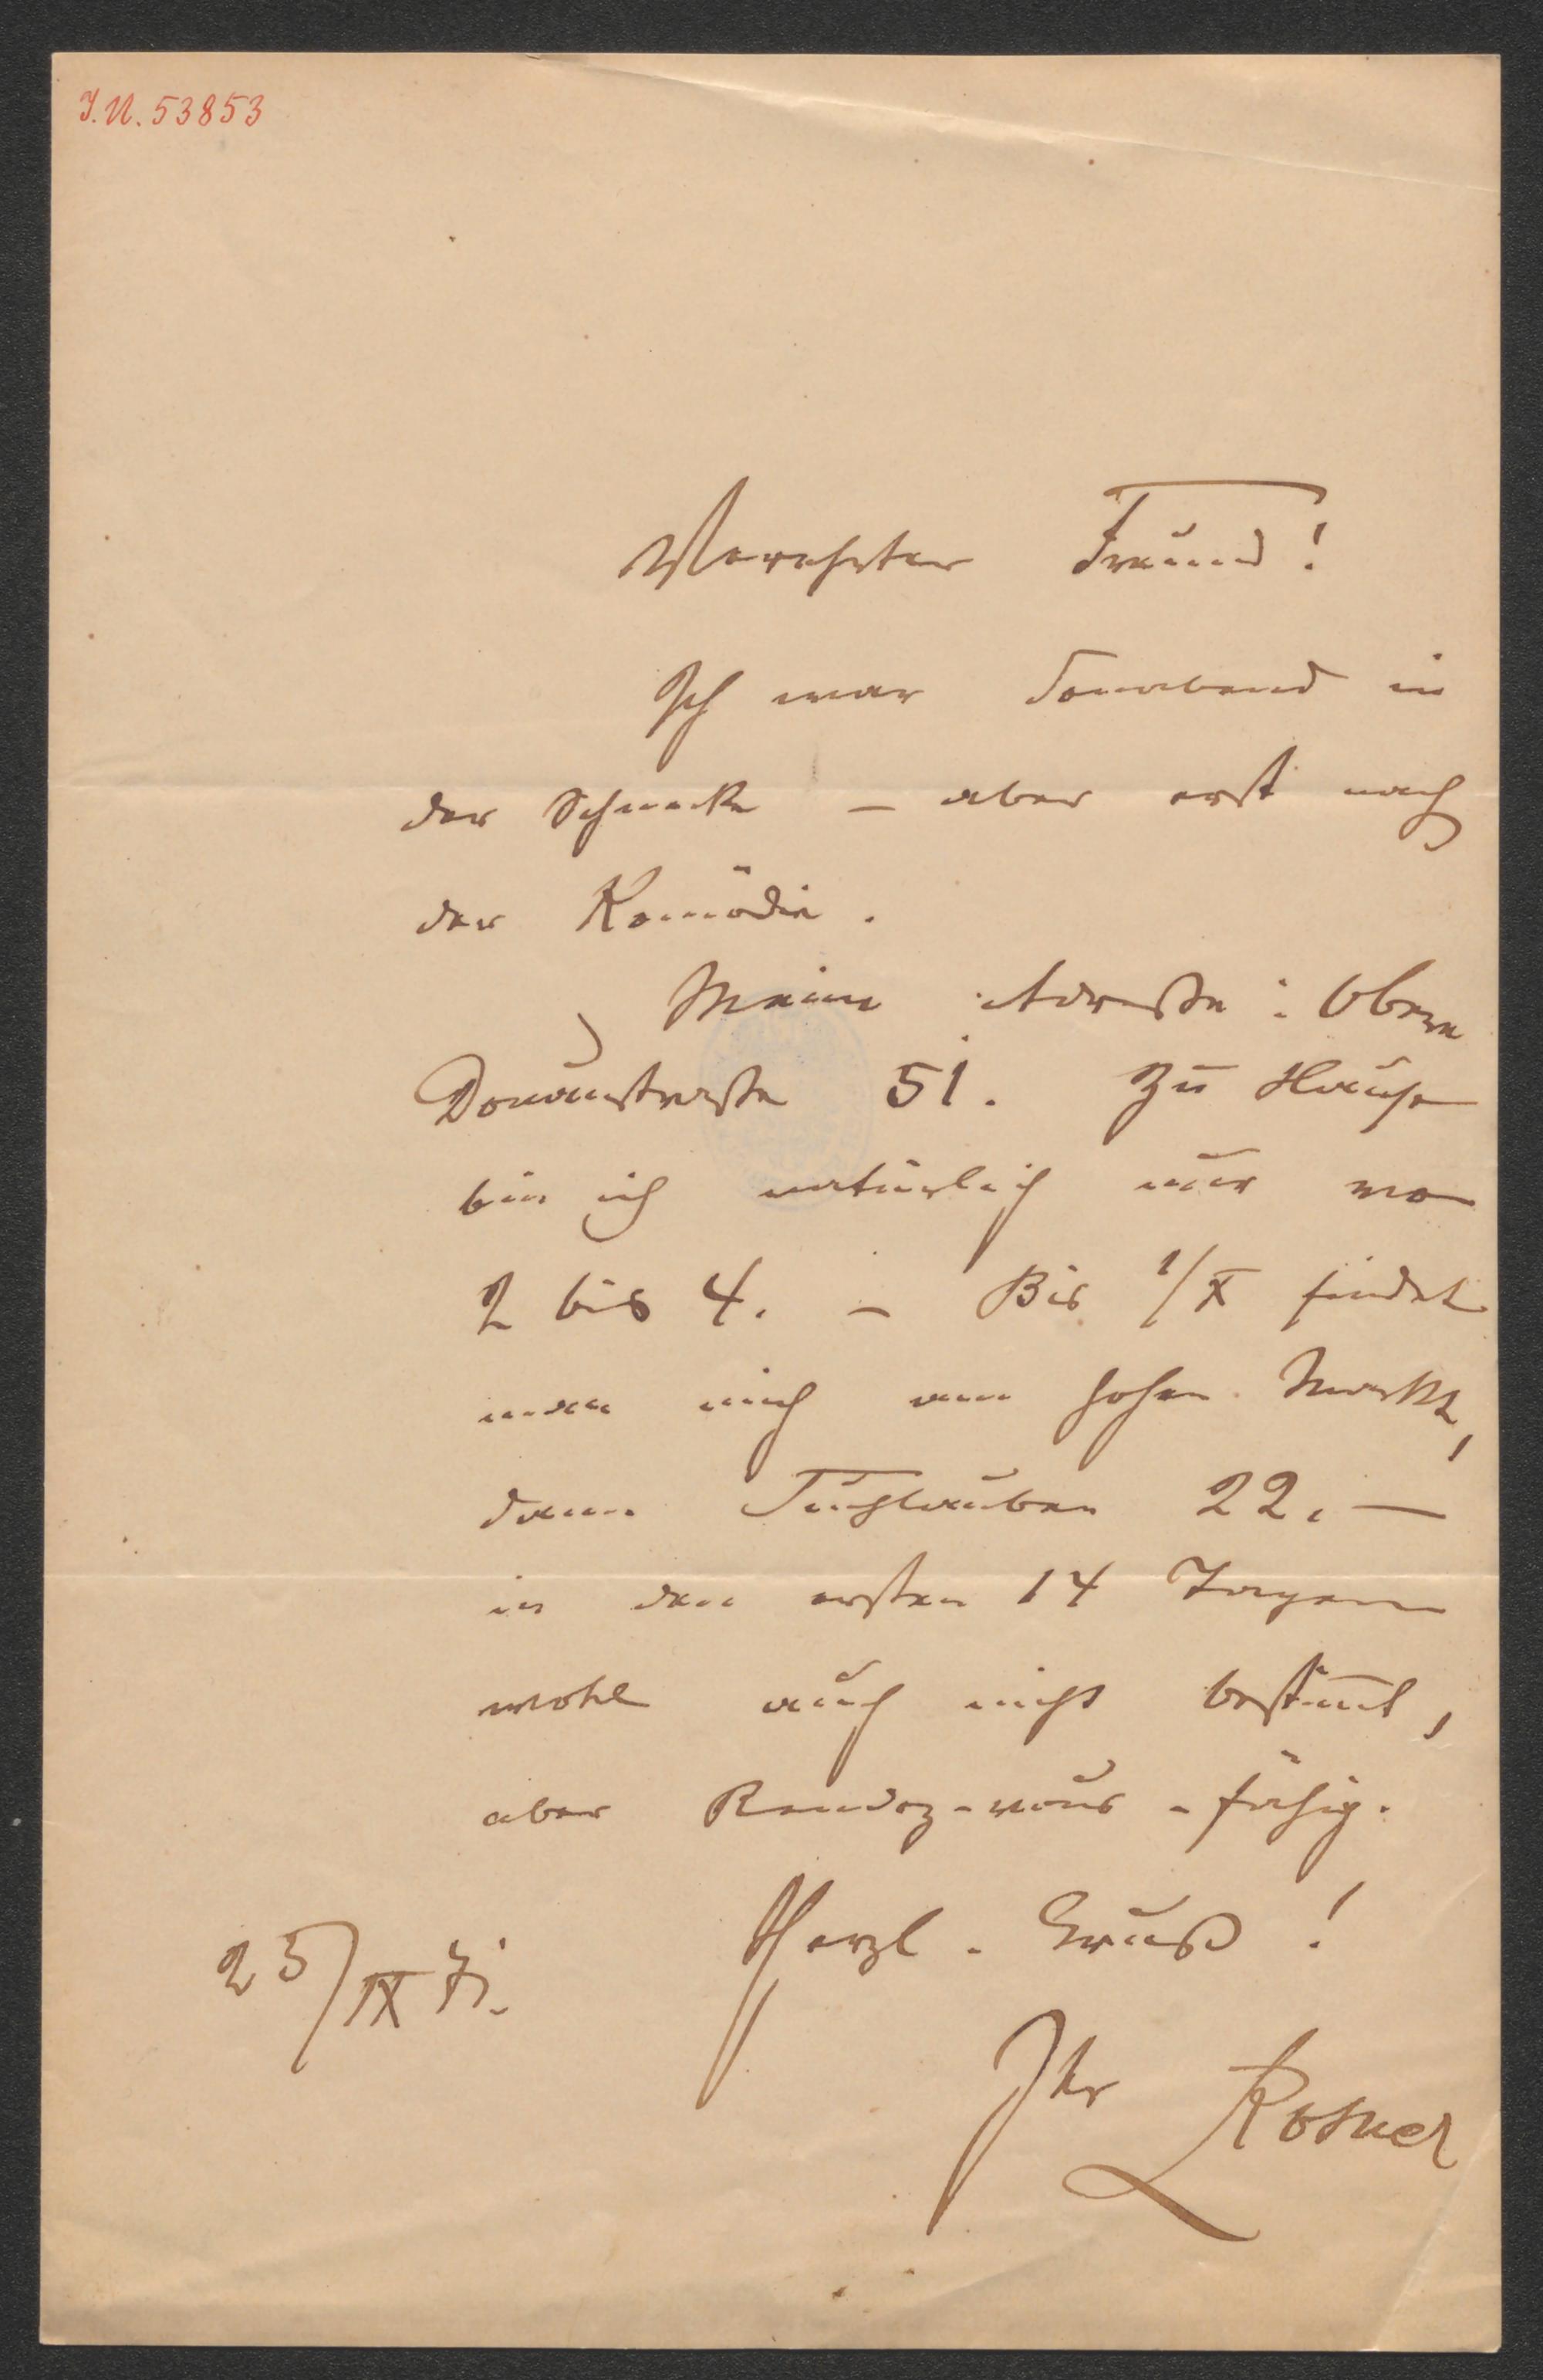 J. N. 53853
Verehrter Freund!
Ich war Sonnabend in
der Schnecke – aber erst nach
der Komödie.
Meine Adresse: Obere
Donaustraße 51. Zu Hause
bin ich natürlich nur von
2 bis 4. – Bis 1/X findet
man mich am hohen Markt,
dann Tuchlauben 22. –
in den ersten 14 Tagen
wohl auch nicht bestimt,
aber Rendez-vous-fähig.
Herzl. Gruß!
25/IX
Ihr Rosner